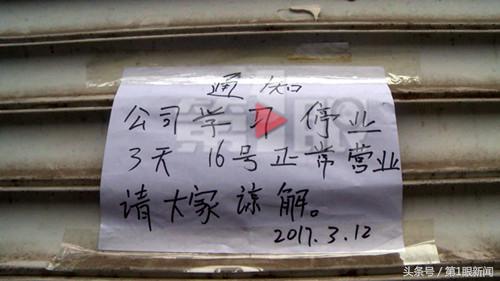 通知
公司学习停业
3天 16号正常营业
请大家谅解。
2017.3.12
头条号 / 第1眼新闻